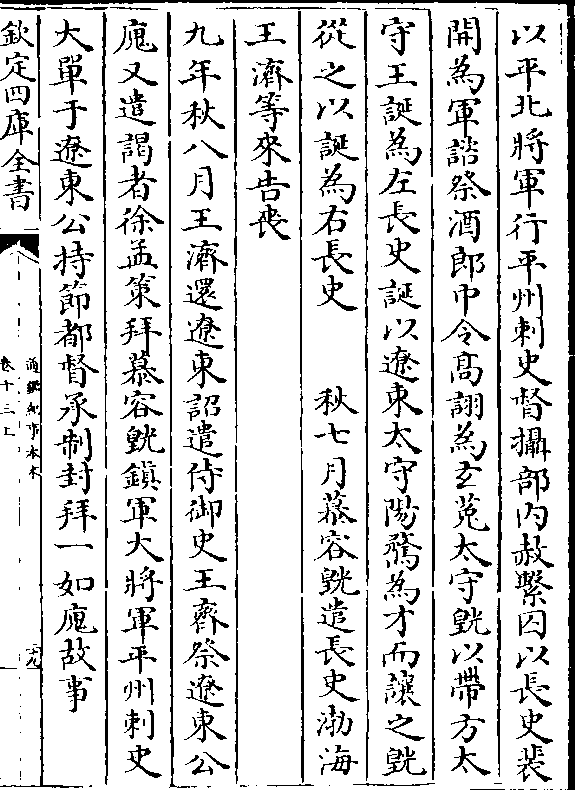 以平北將軍行平州刺史督攝部內赦繫囚以長史裴
開為軍諮祭酒郎中令高詡為玄菟太守皝以帶方太
守王誕為左長史誕以遼東太守陽騖為才而讓之皝
從之以誕為右長史　秋七月慕容皝遣長史渤海
王濟等來告喪
九年秋八月王濟還遼東詔遣侍御史王齊祭遼東公
廆又遣謁者徐孟策拜慕容皝鎮軍大將軍平州刺史
大單于遼東公持節都督承制封拜一如廆故事
欽定四庫全書
通鑑紀事本末
卷十三上
十九